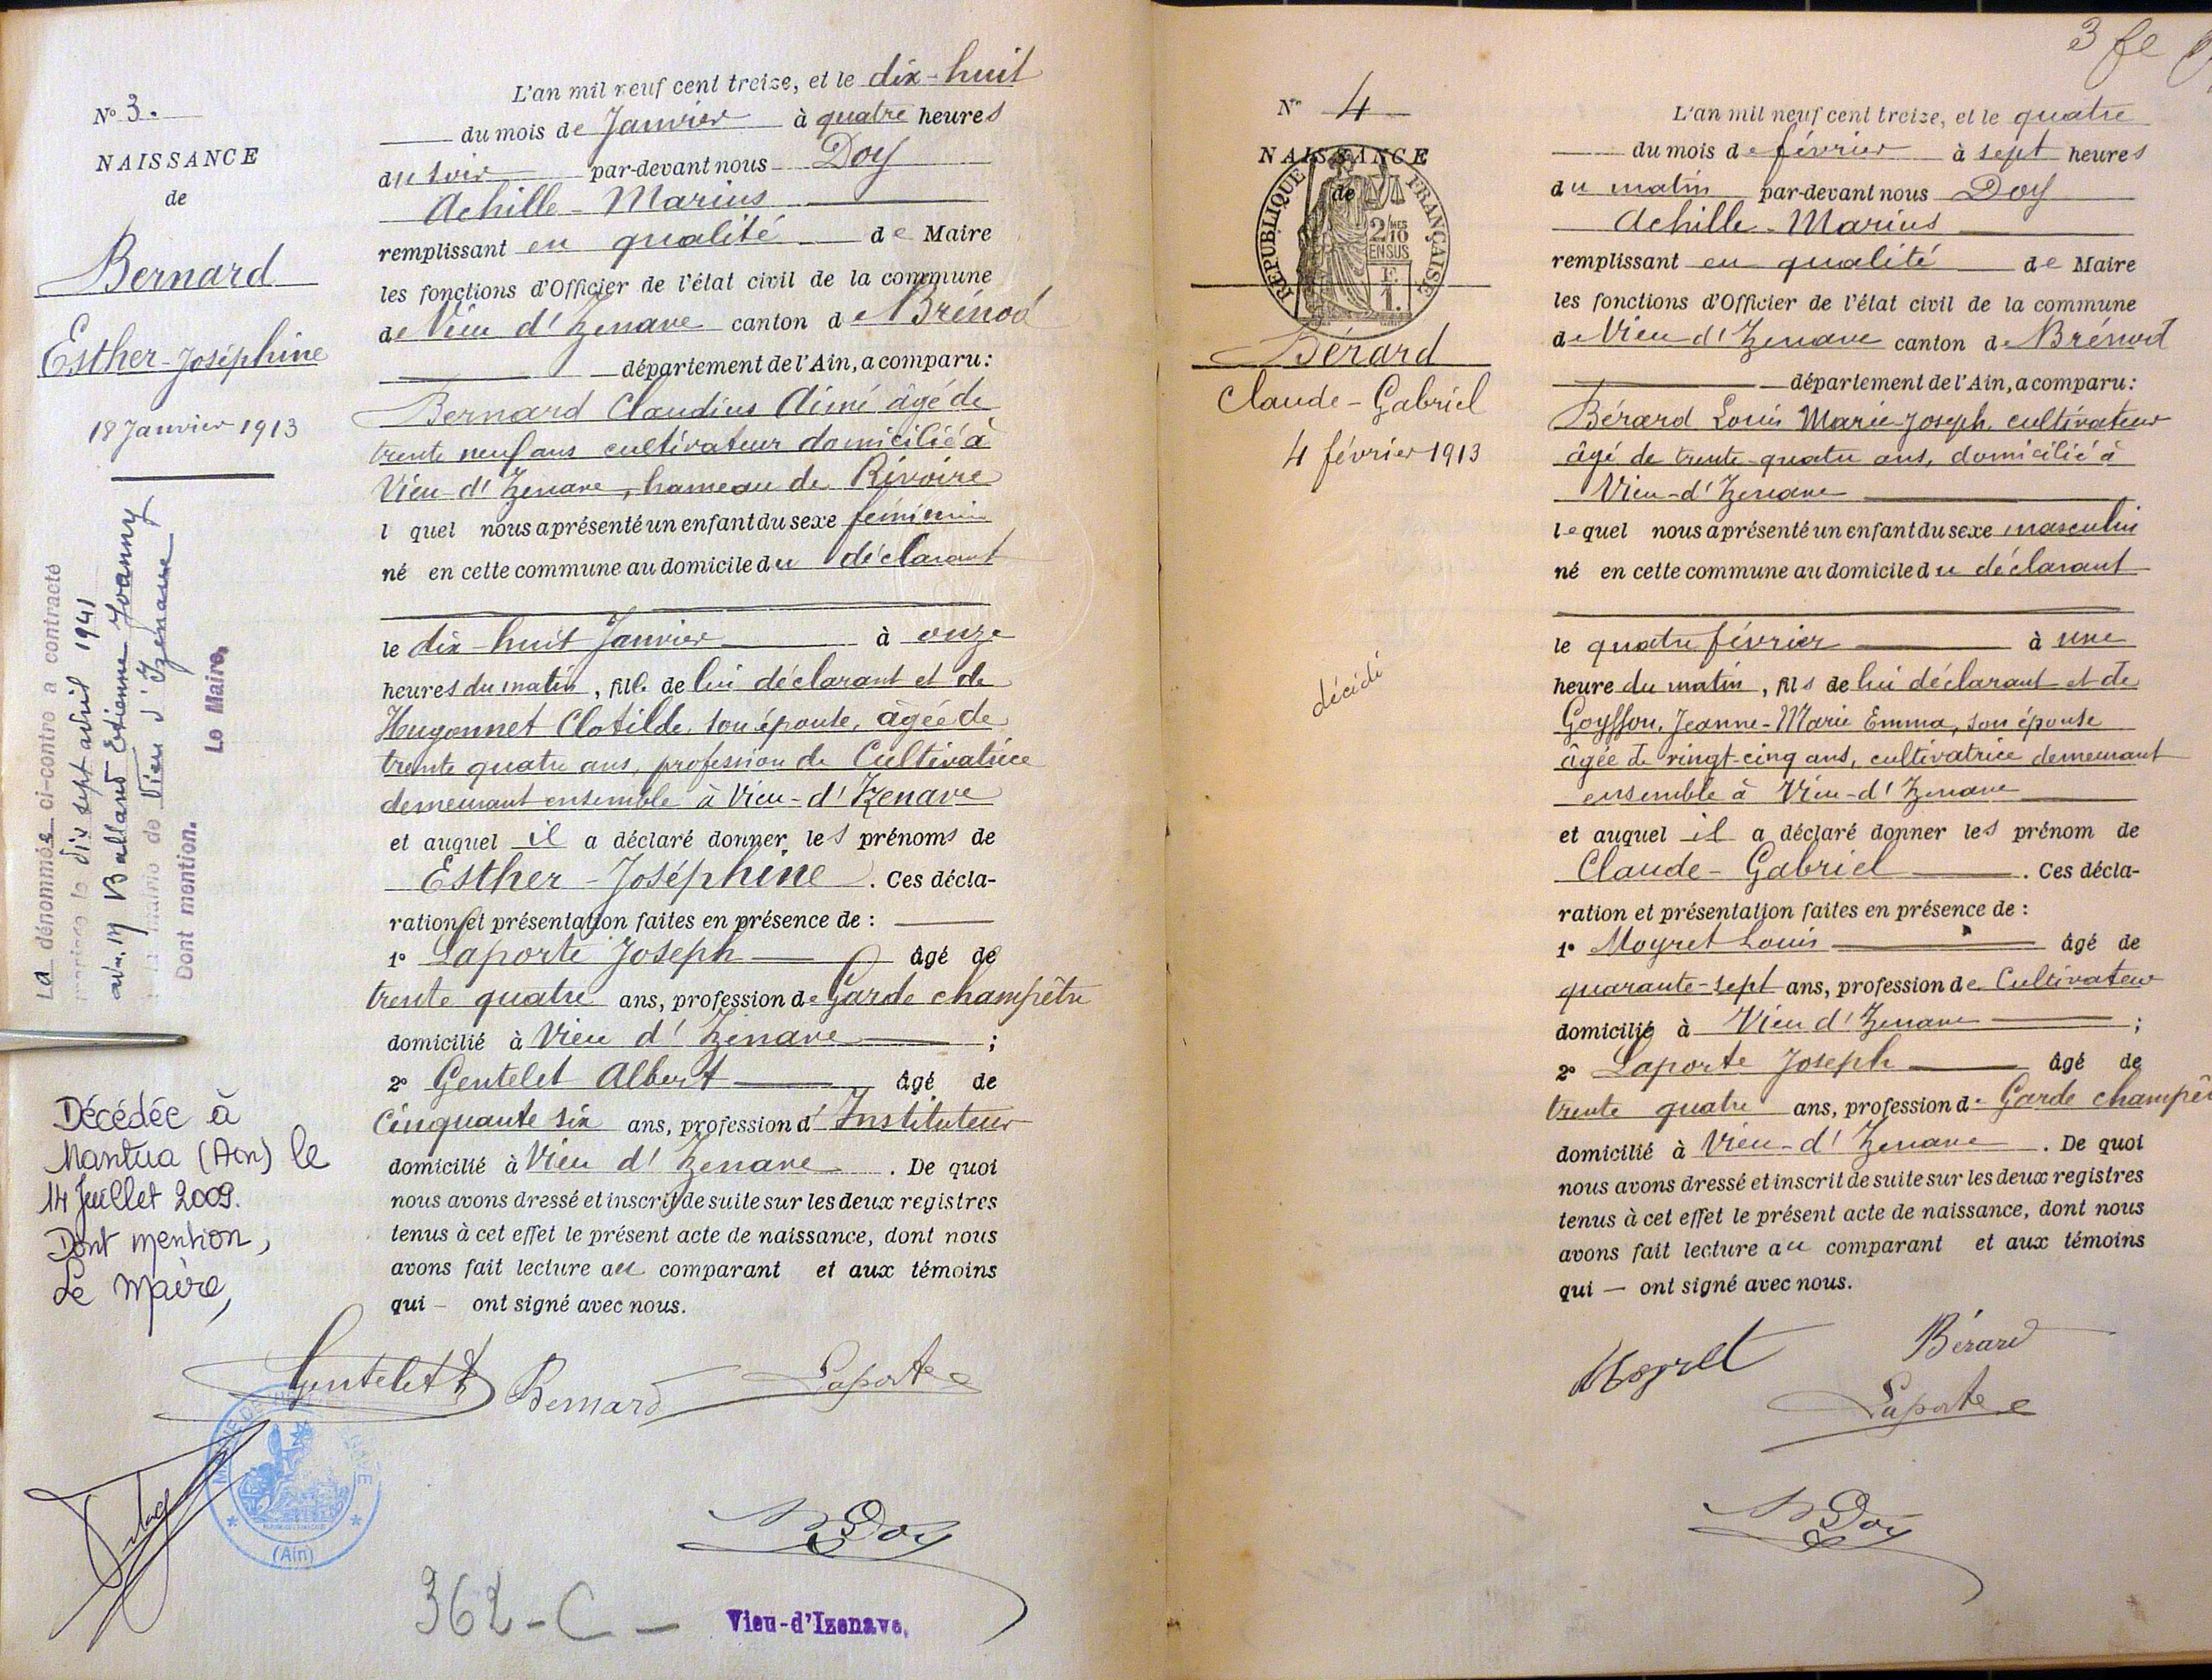 N° 3.
NAISSANCE
de
Bernard
Esther-Joséphine
18 Janvier 1913
La dénommée ci-contre a contracté
mariage le dix sept avril 1941
avec M Balland Etienne Joanny
à la mairie de Vieu d'Izenave
Dont mention. Le Maire,
Décédée à
Nantua (Ain) le
14 Juillet 2009.
Dont mention,
Le Maire,
L'an mil neuf cent treize, et le dix-huit
du mois de Janvier à quatre heures
du soir par-devant nous Doy
Achille-Marius
remplissant en qualité de Maire
les fonctions d'Officier de l'état civil de la commune
de Vieu d'Izenave canton de Brénod
département de l'Ain, a comparu:
Bernard Claudius Aimé âgé de
trente neuf ans cultivateur domicilié à
Vieu-d'Izenave, hameau de Rivoire
l quel nous a présenté un enfant du sexe féminin
né en cette commune au domicile du déclarant
le dix-huit Janvier à onze
heures du matin, fille de lui déclarant et de
Hugonnet Clotilde, son épouse, âgée de
trente quatre ans, profession de Cultivatrice
demeurant ensemble à Vieu-d'Izenave
et auquel il a déclaré donner les prénoms de
Esther-Joséphine. Ces décla-
ration et présentation faites en présence de :
1° Laporte Joseph âgé de
trente quatre ans, profession de Garde champêtre
domicilié à Vieu d'Izenave ;
2° Gentelet Albert âgé de
cinquante six ans, profession d'Instituteur
domicilié à Vieu d'Izenave. De quoi
nous avons dressé et inscrit de suite sur les deux registres
tenus à cet effet le présent acte de naissance, dont nous
avons fait lecture au comparant et aux témoins
qui — ont signé avec nous.
Gentelet Bernard Laporte
Doy
(Ain)
362-C-
Vieu-d'Izenave,
3 fe
N° 4
NAISSANCE
de
RÉPUBLIQUE FRANÇAISE
2/10 MES
EN SUS
F.
1.
Bérard
Claude-Gabriel
4 février 1913
décédé
L'an mil neuf cent treize, et le quatre
du mois de février à sept heures
du matin par-devant nous Doy
Achille-Marius
remplissant en qualité de Maire
les fonctions d'Officier de l'état civil de la commune
de Vieu-d'Izenave canton de Brénod
département de l'Ain, a comparu:
Bérard Louis Marie-Joseph, cultivateur
âgé de trente-quatre ans, domicilié à
Vieu-d'Izenave
lequel nous a présenté un enfant du sexe masculin
né en cette commune au domicile du déclarant
le quatre février à une
heure du matin, fils de lui déclarant et de
Goyffon, Jeanne-Marie Emma, son épouse
âgée de vingt-cinq ans, cultivatrice demeurant
ensemble à Vieu-d'Izenave
et auquel il a déclaré donner les prénom de
Claude-Gabriel. Ces décla-
ration et présentation faites en présence de :
1° Moyret Louis âgé de
quarante-sept ans, profession de Cultivateur
domicilié à Vieu d'Izenave ;
2° Laporte Joseph âgé de
trente quatre ans, profession de Garde champêt
domicilié à Vieu-d'Izenave. De quoi
nous avons dressé et inscrit de suite sur les deux registres
tenus à cet effet le présent acte de naissance, dont nous
avons fait lecture au comparant et aux témoins
qui — ont signé avec nous.
Moyret Bérard
Laporte
Doy